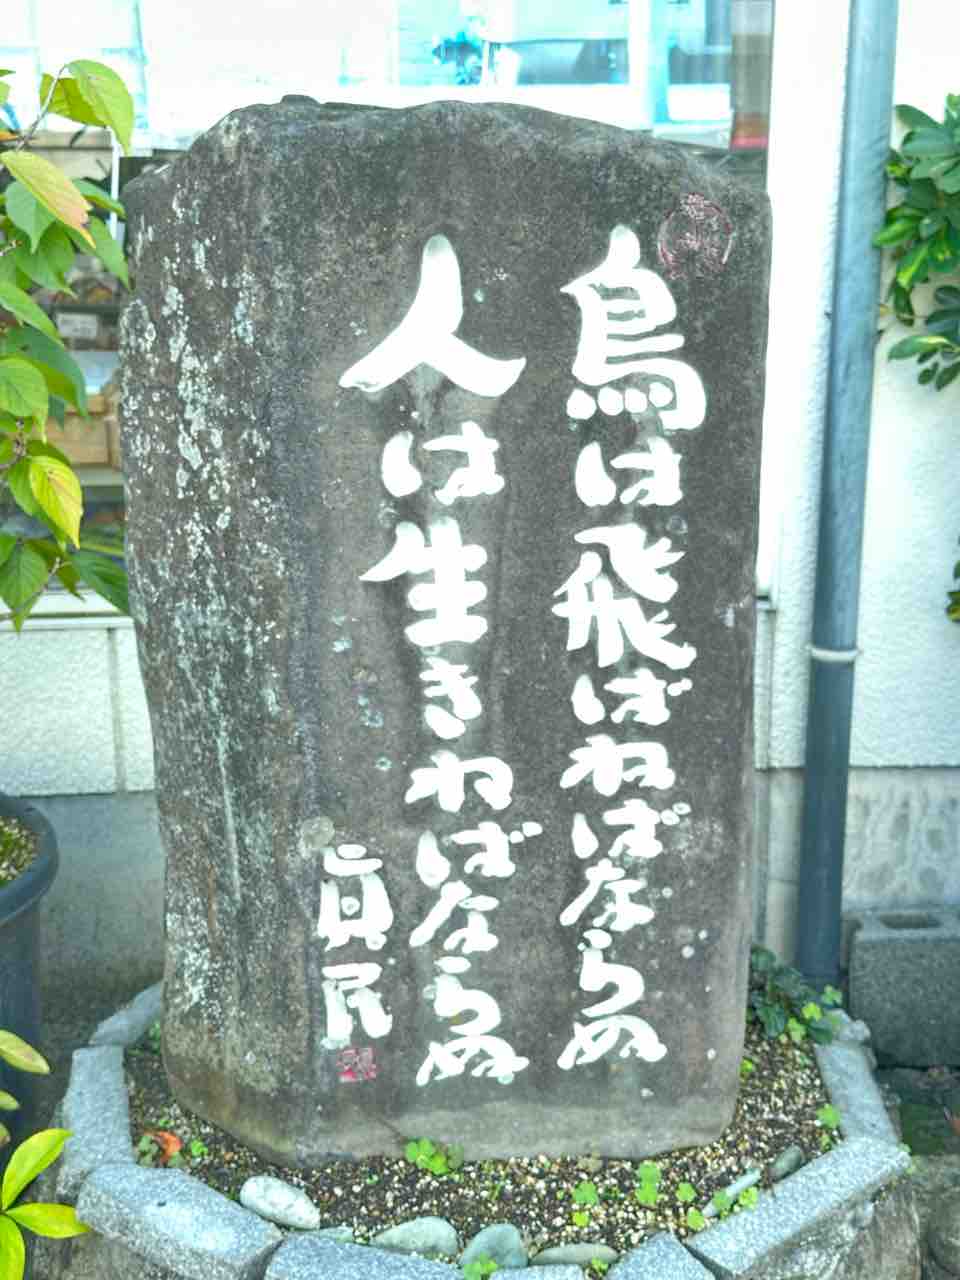 鳥は飛ばねばならぬ
人は生きねばならぬ
真民